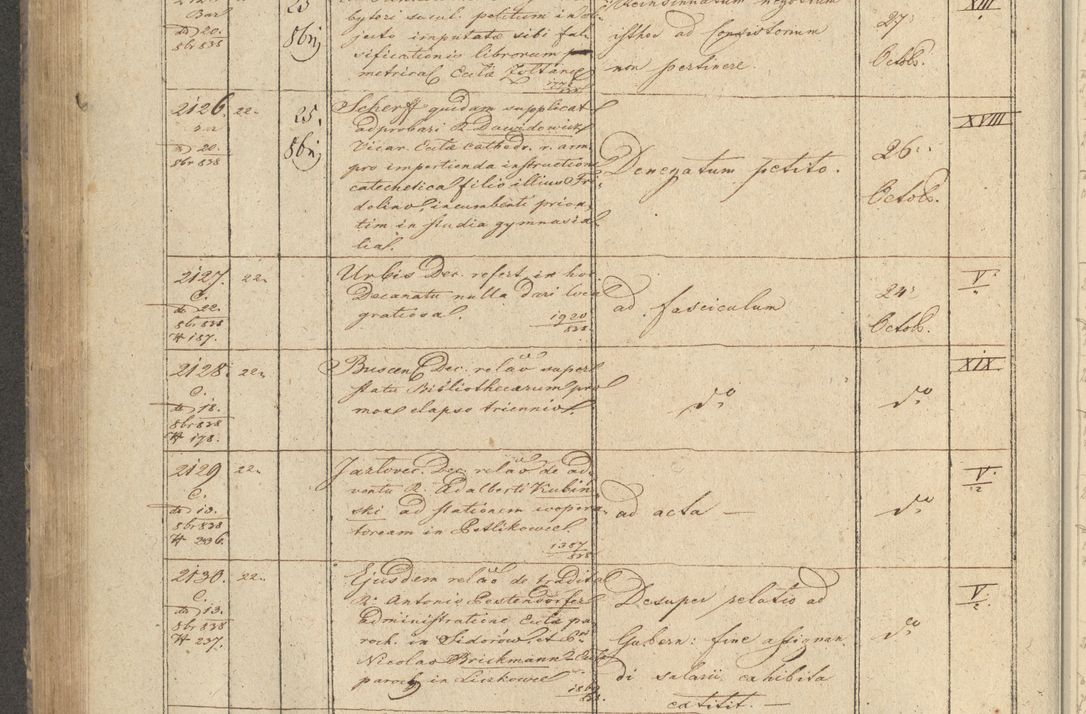 Bar 25
de 20.
8br 838 8bri
bytori
justo imputata sibi fal-
sificationis librorum
metrical Eccla
isthoc ad Consistorium
non pertinere.
27
Octob.
XIII
2126. 22. 25. 8bri
de 20.
8br 838
Scherff quidam supplicat
adprobari R. Dawidowicz
Vicar. Eccla Cathedr. r. arm.
pro impertienda instructione
catechetica filio illius Fri-
dolino, incumbenti priva-
tim in studia gymnasia-
lia.
Denegatum petito.
26.
Octob.
XVIII
2127. 22.
C.
de 22.
8br 838
# 187.
Urbis Dec. refert in hoc
Decanatu nulla dari loca
gratiosa. 1920/838
ad fasciculum
24
Octob.
V
2128. 22.
C.
de 18.
8br 838
# 178.
Buscen Dec. relao super
statu Bibliothecarum pro
mox elapso triennio.
do
do
XIX
2129 22.
C.
de 13.
8br 838
# 236.
Jazlovec. Dec. relao de ad-
ventu R. Adalberti Kubin-
ski ad stationem coopera-
toream in Petlikowce.
1387/838
ad acta —
do
V/12
2130. 22.
C.
de 13.
8br 838
# 237.
Ejusdem relao de tradita
R. Antonio Pestendorfer
administratione Eccla pa-
roch. in Sidorów, et R.
Nicolao Brickmann Eccla
paroch in Liczkowce
Desuper relatio ad
Gubern: fine assignan-
di salarii exhibita
extitit. —
do
V/2